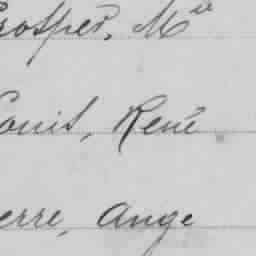 rosper, Mie
ouis, René
erre, Ange